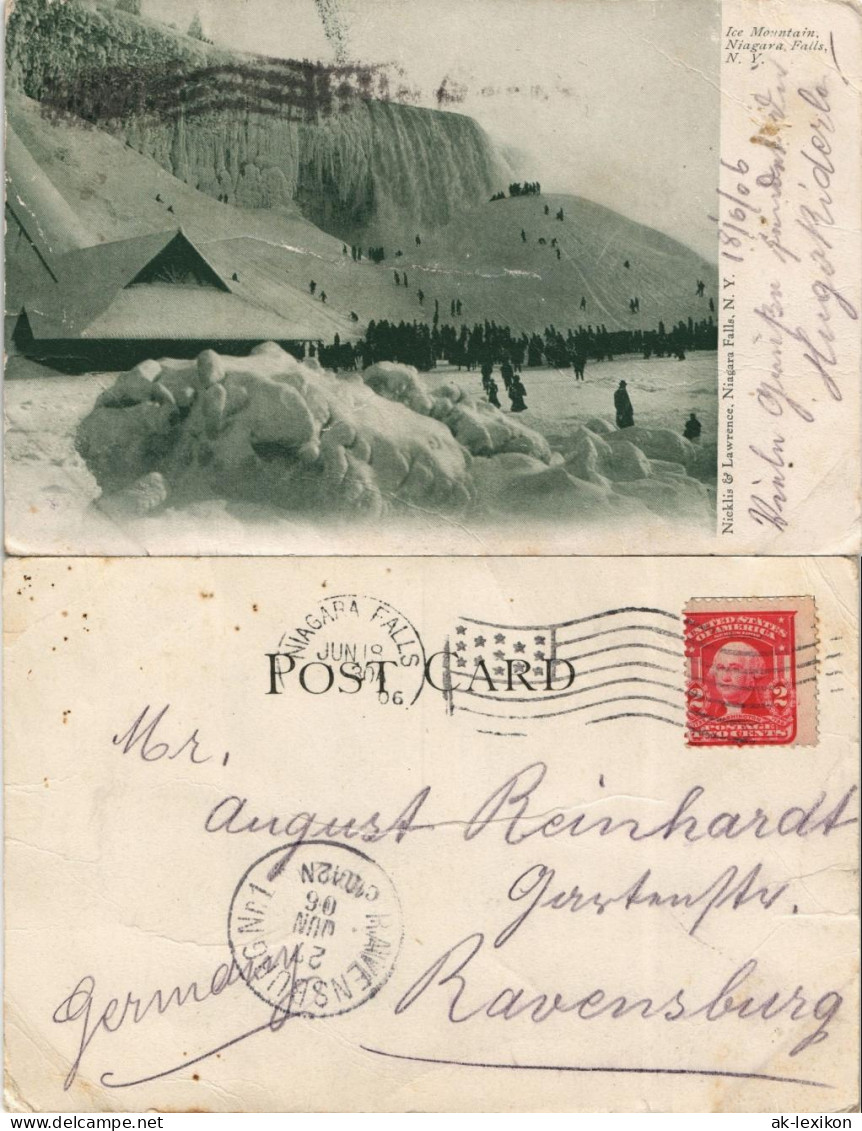 Ice Mountain,
Niagara Falls,
N. Y.
Nicklis & Lawrence, Niagara Falls, N. Y.
18/6/06
Viele Grüße sendet
Hugo
POST CARD
NIAGARA FALLS
JUN 18
06
UNITED STATES
OF AMERICA
2 2
POSTAGE
TWO CENTS
Mr.
August Reinhardt
Gartenstr.
Ravensburg
Germany
RAVENSBURG Nr. 1
JUN
06
DELCAMPE.NET
ak-lexikon